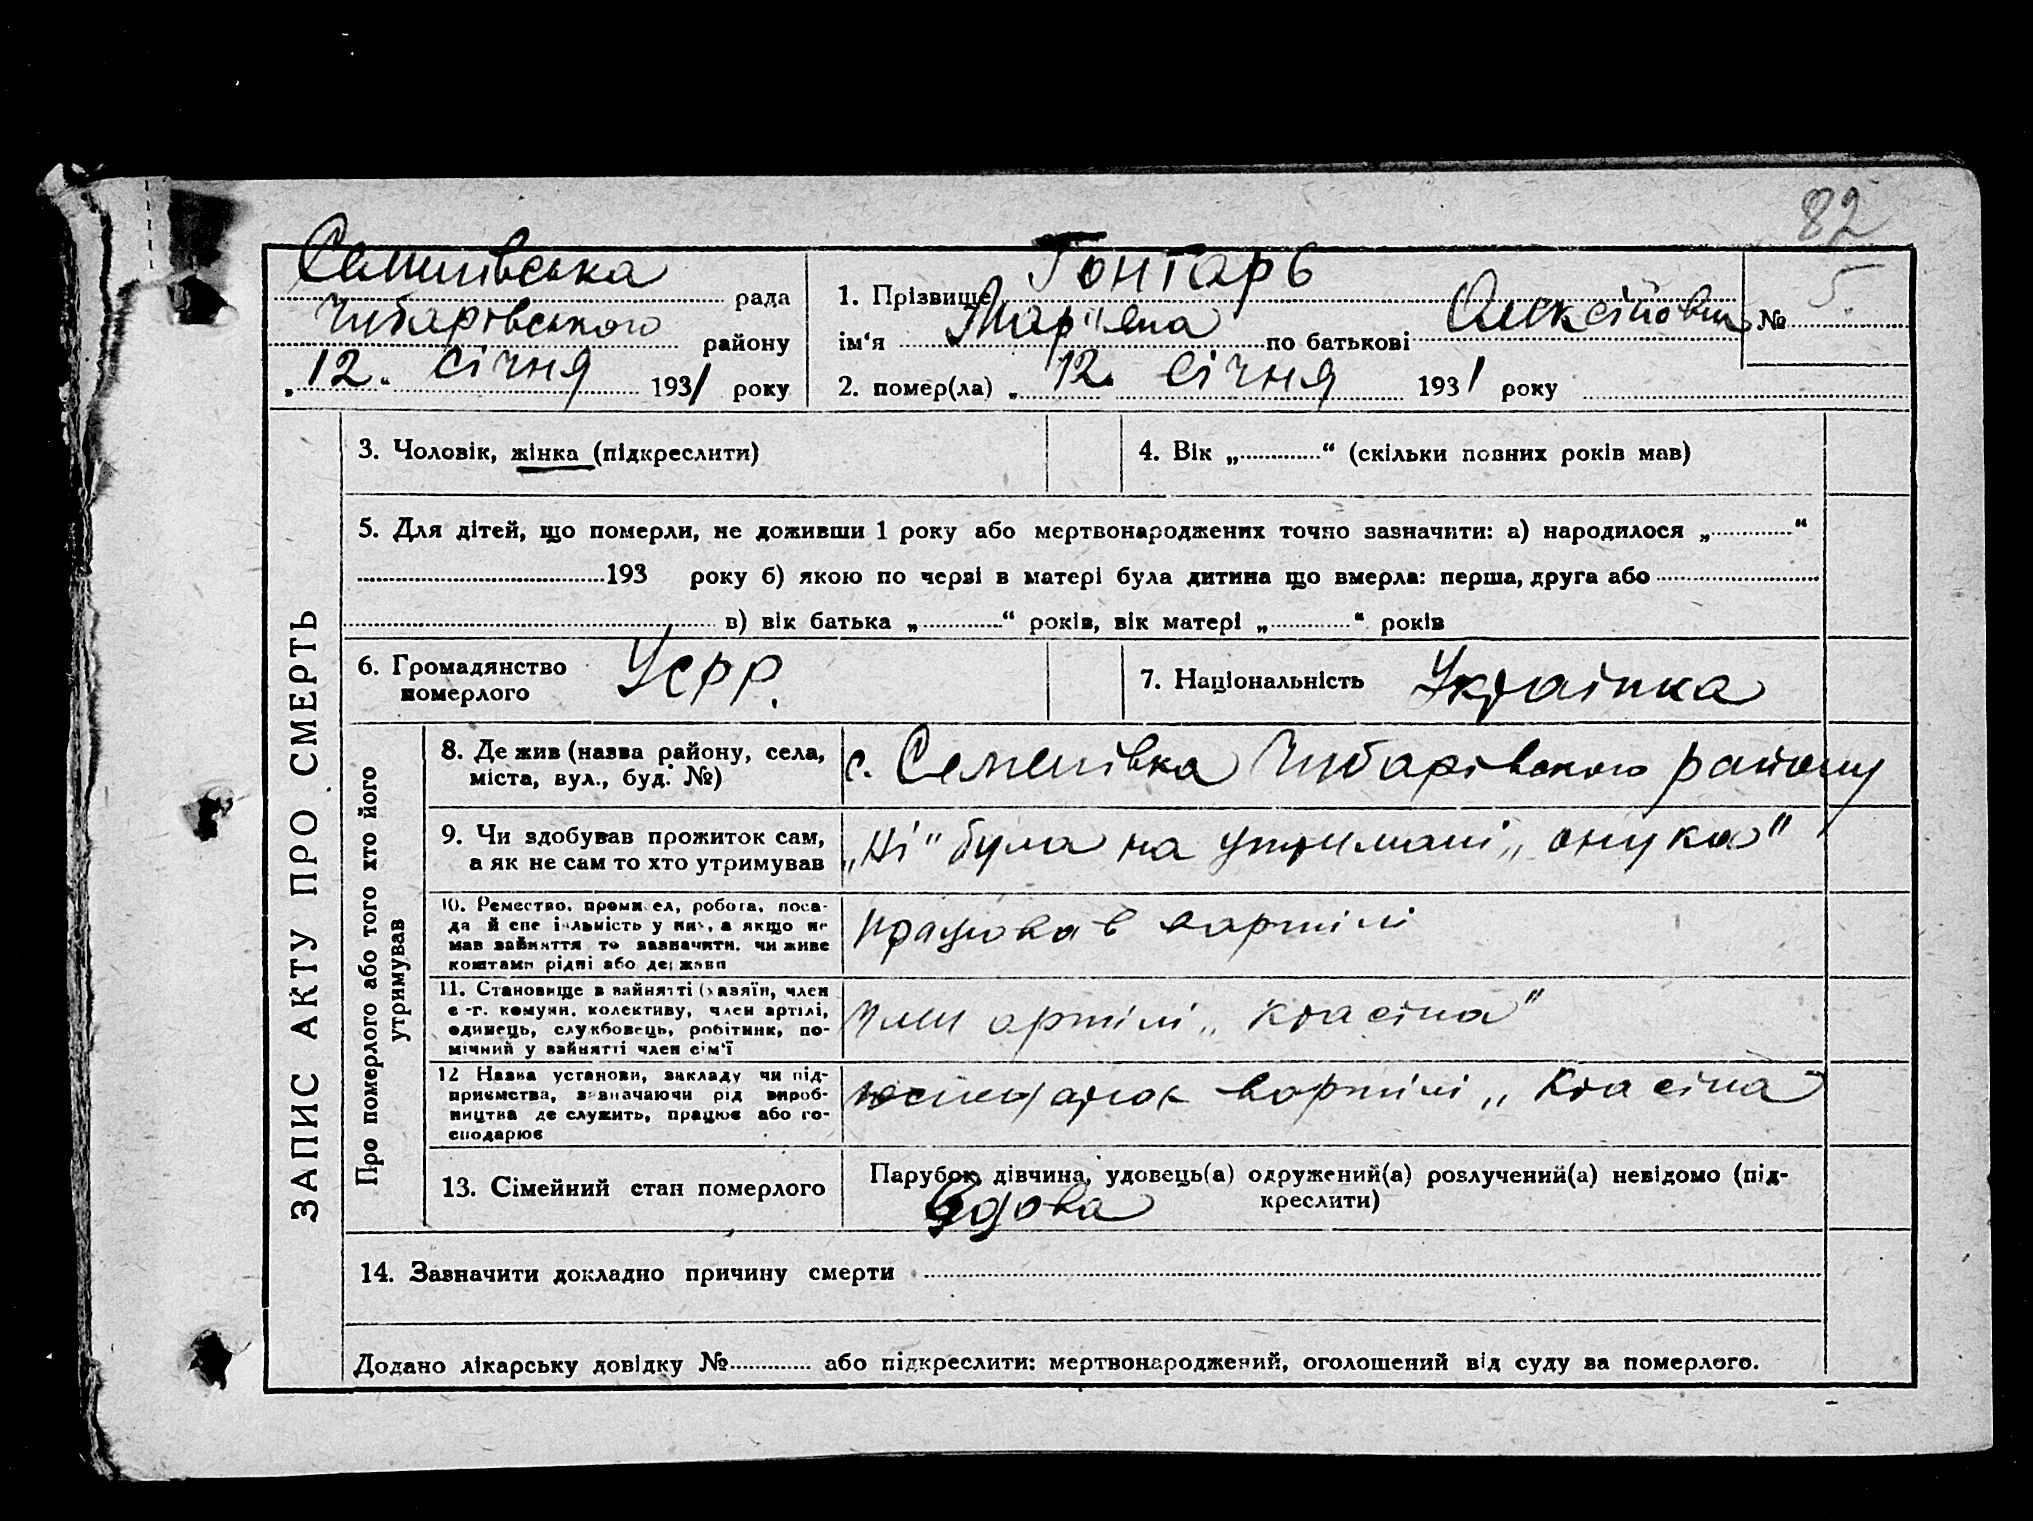 82
Семенівська рада
Чубарівського району
„12. січня 1931 року
1. Прізвище Гонтарь
ім'я Мар"яна по батькові Олексійовна
№ 5
2. помер(ла) „12. січня 1931 року
ЗАПИС АКТУ ПРО СМЕРТЬ
3. Чоловік, жінка (підкреслити)
4. Вік „ “ (скільки повних років мав)
5. Для дітей, що померли, не доживши 1 року або мертвонароджених точно зазначити: а) народилося „ “
193 року б) якою по черзі в матері була дитина що вмерла: перша, друга або
в) вік батька „ “ років, вік матері „ “ років
6. Громадянство
померлого
Усрр.
7. Національність Українка
Про померлого або того хто його
утримував
8. Де жив (назва району, села,
міста, вул., буд. №)
с. Семенівка Чубарівского району
9. Чи здобував прожиток сам,
а як не сам то хто утримував
„Ні" була на утримані „онука"
10. Ремество, промисел, робота, поса-
да й спеціяльність у них, а якщо не
мав зайняття то зазначити, чи живе
коштами рідні або держави
працював вартілі
11. Становище в зайнятті (хазяїн, член
с.-г. комуни, колективу, член артілі,
одинець, службовець, робітник, по-
мічний у зайнятті член сім'ї
член артілі „Красіна"
12 Назва установи, закладу чи під-
приємства, зазначаючи рід вироб-
ництва де служить, працює або го-
сподарює
вартілі „Красіна
13. Сімейний стан померлого
Парубок, дівчина, удовець(а) одружений(а) розлучений(а) невідомо (під-
креслити)
Вдова
14. Зазначити докладно причину смерти
Додано лікарську довідку № або підкреслити: мертвонароджений, оголошений від суду за померлого.